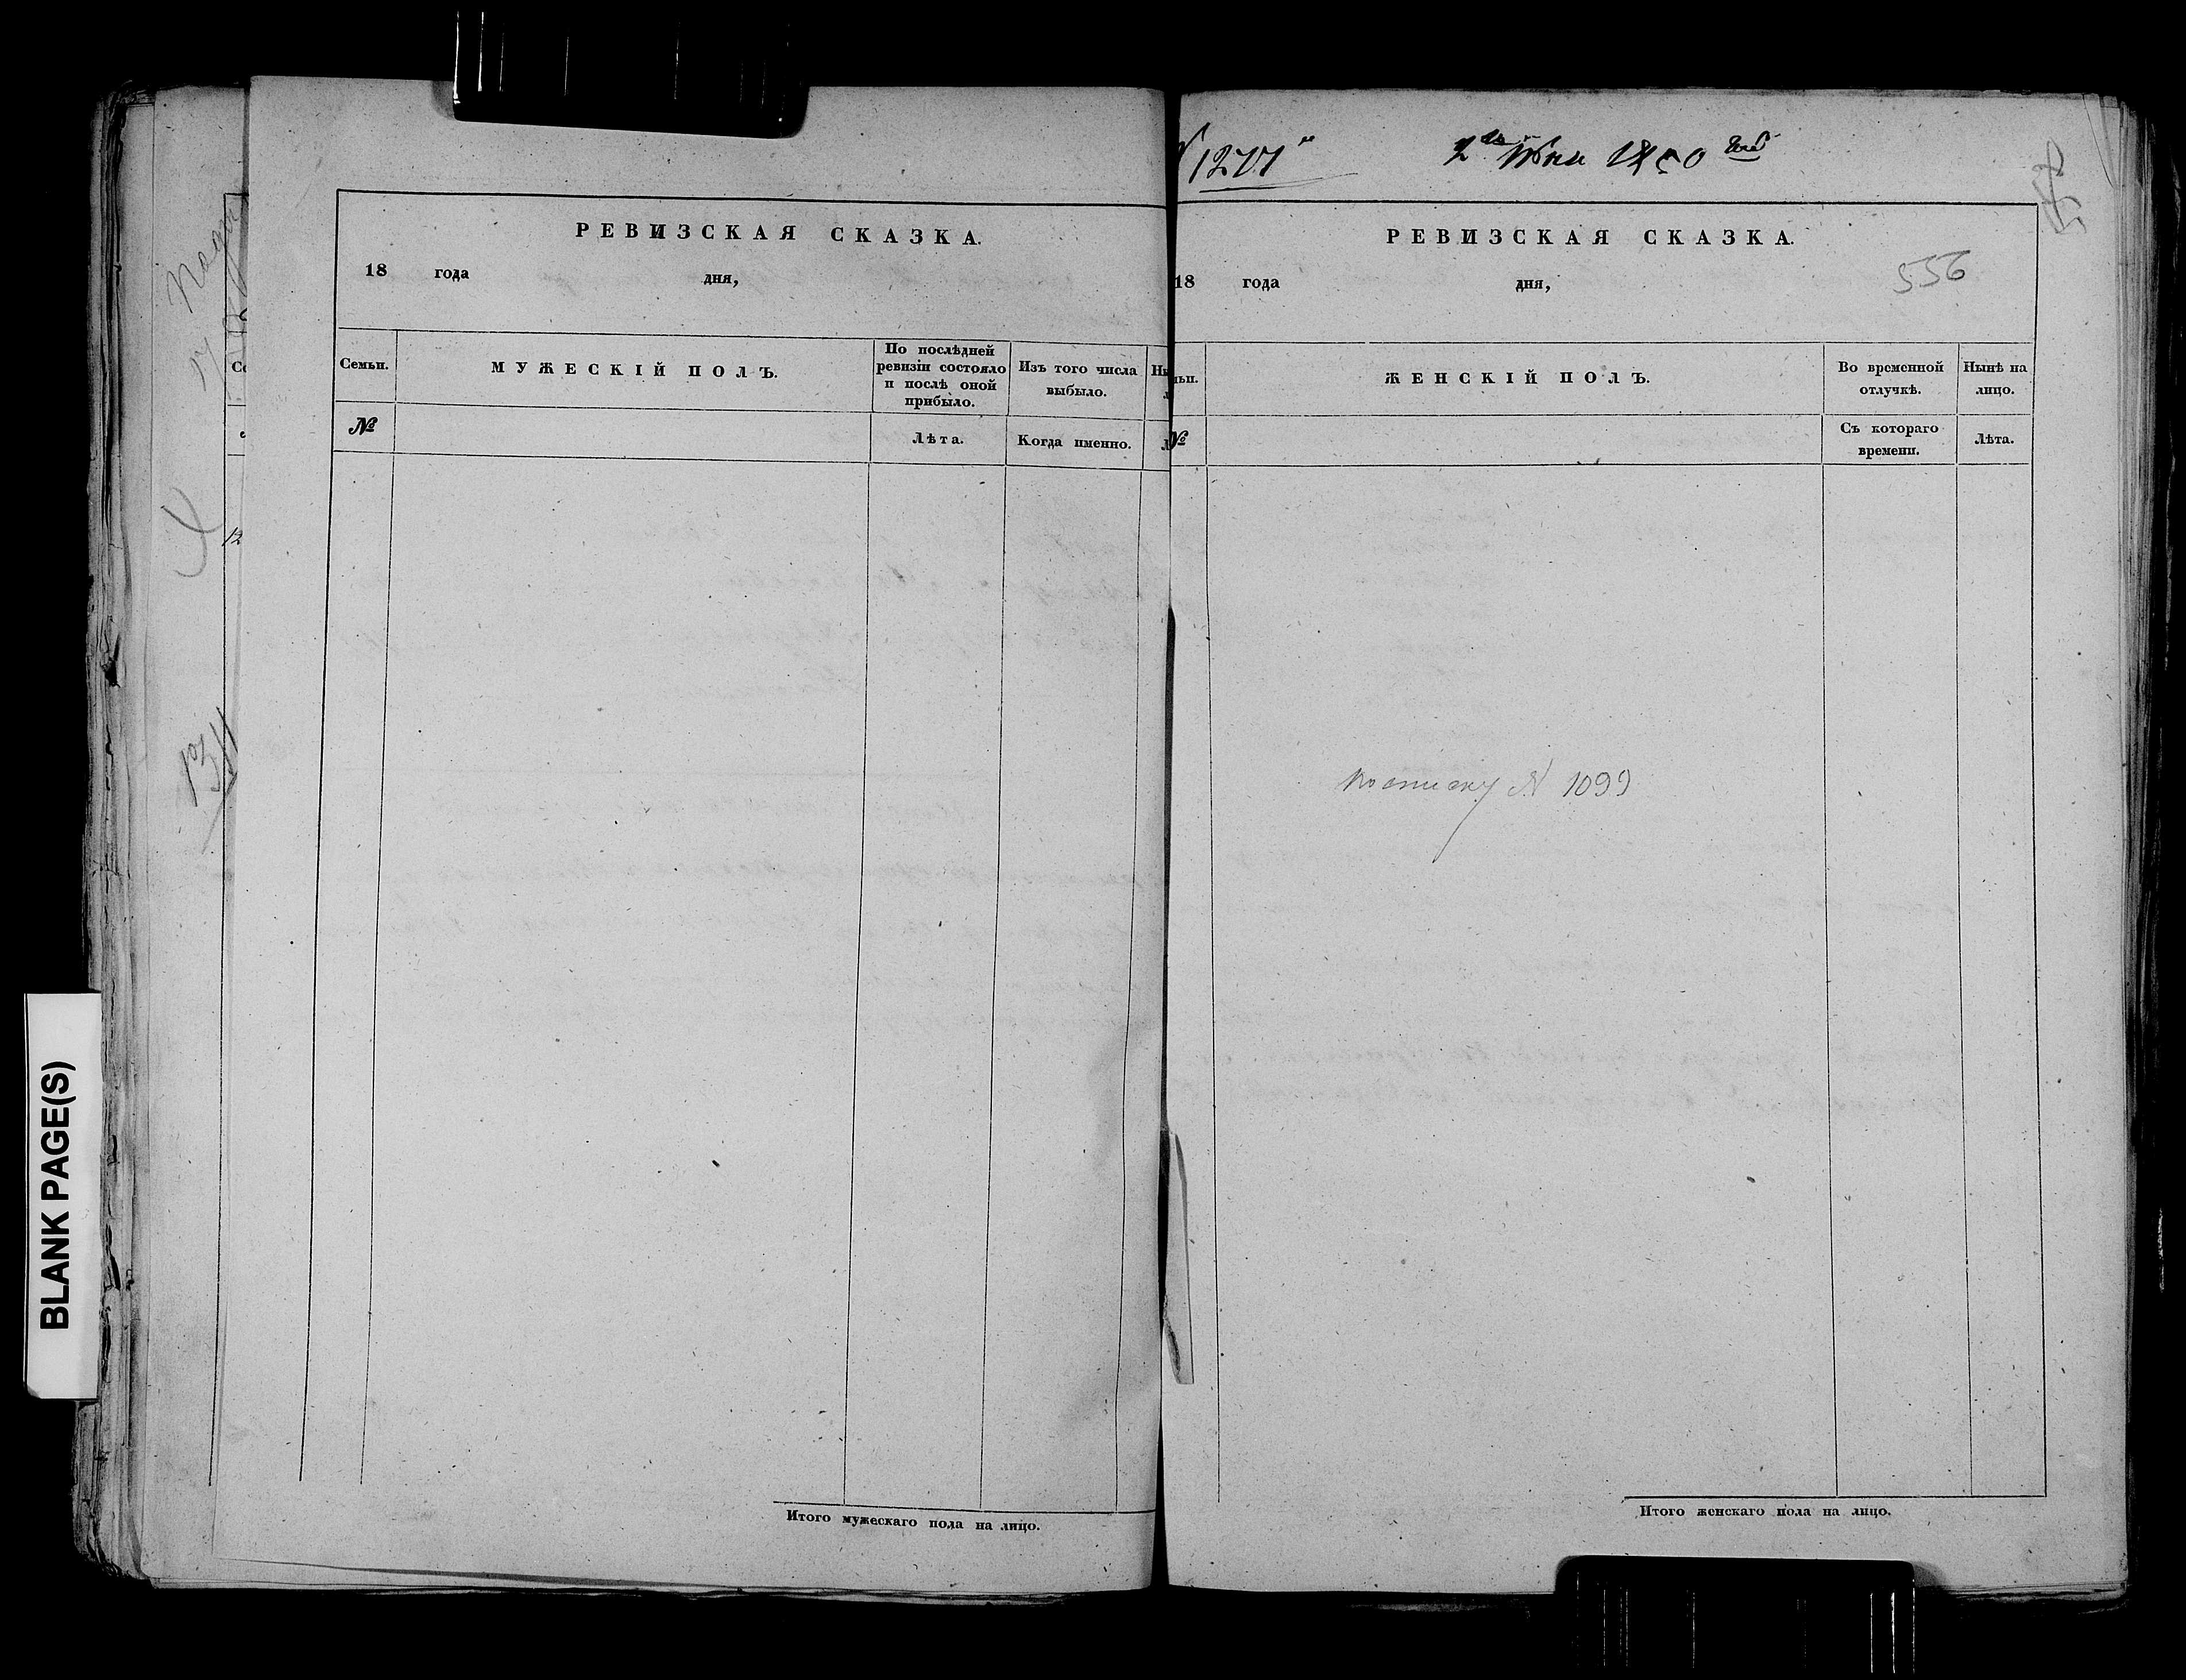 BLANK PAGE(S)
РЕВИЗСКАЯ СКАЗКА.
18 года дня,
Семьи.
МУЖЕСКІЙ ПОЛЪ.
По послѣдней ревизіи состояло и послѣ оной прибыло.
Изъ того числа выбыло.
№
Лѣта.
Когда именно.
Итого мужескаго пола на лицо.
1850
РЕВИЗСКАЯ СКАЗКА.
18 года дня,
556
ЖЕНСКІЙ ПОЛЪ.
Во временной отлучкѣ.
Нынѣ на лицо.
№
Съ котораго времени.
Лѣта.
по списку № 1099
Итого женскаго пола на лицо.